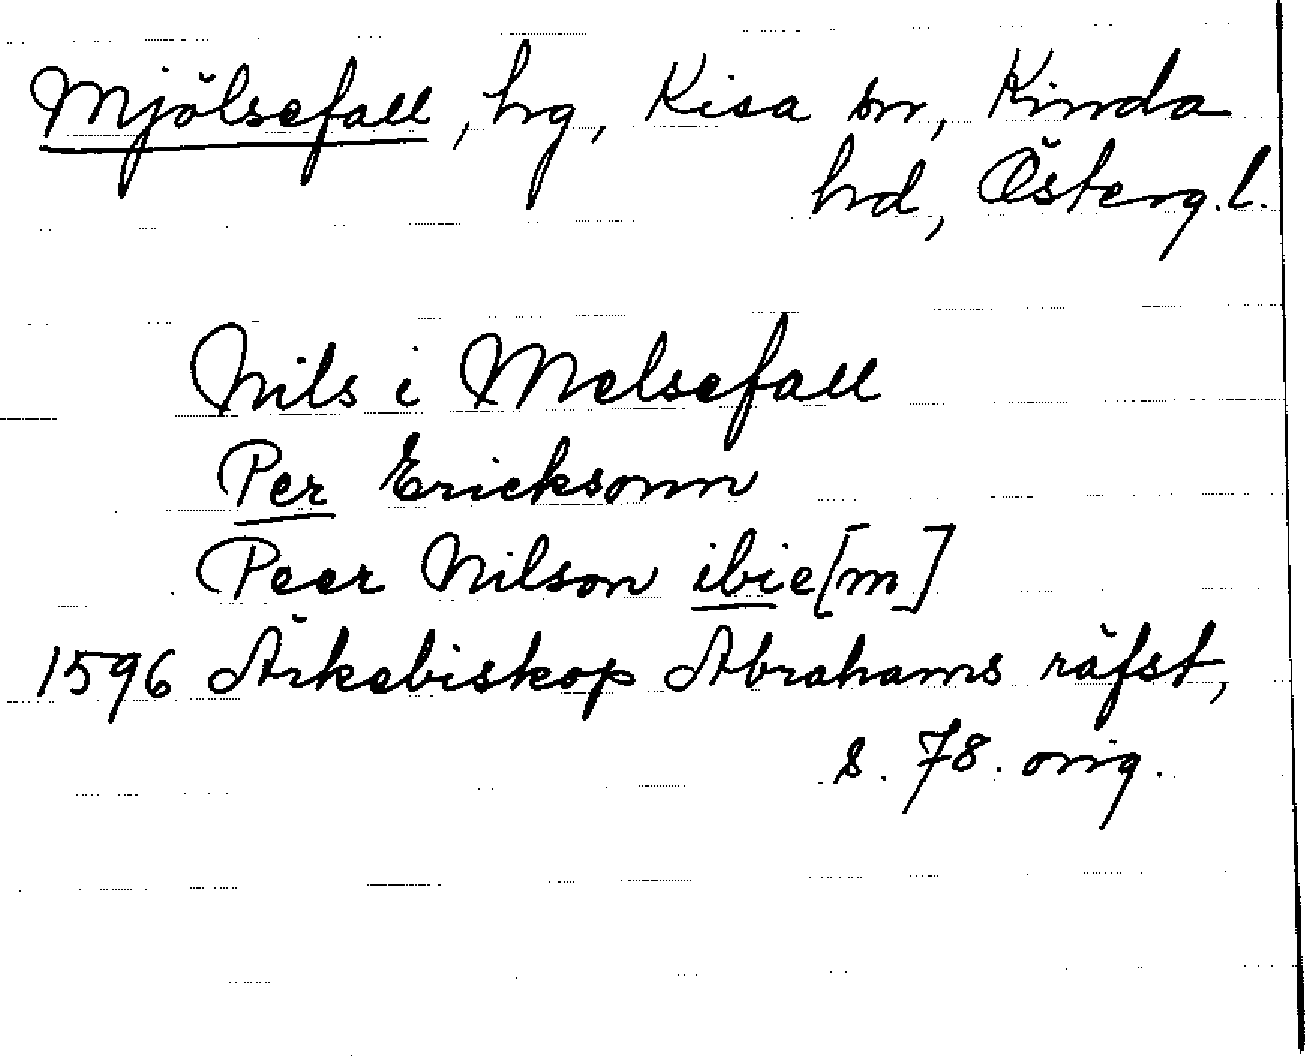 Mjölsefall, hg, Kisa sn, Kinda
hd, Österg.l.
Nils i Melsefall
Per Ericksonn
Peer Nilson ibie[m]
1596 Ärkebiskop Abrahams räfst,
s. 78. orig.